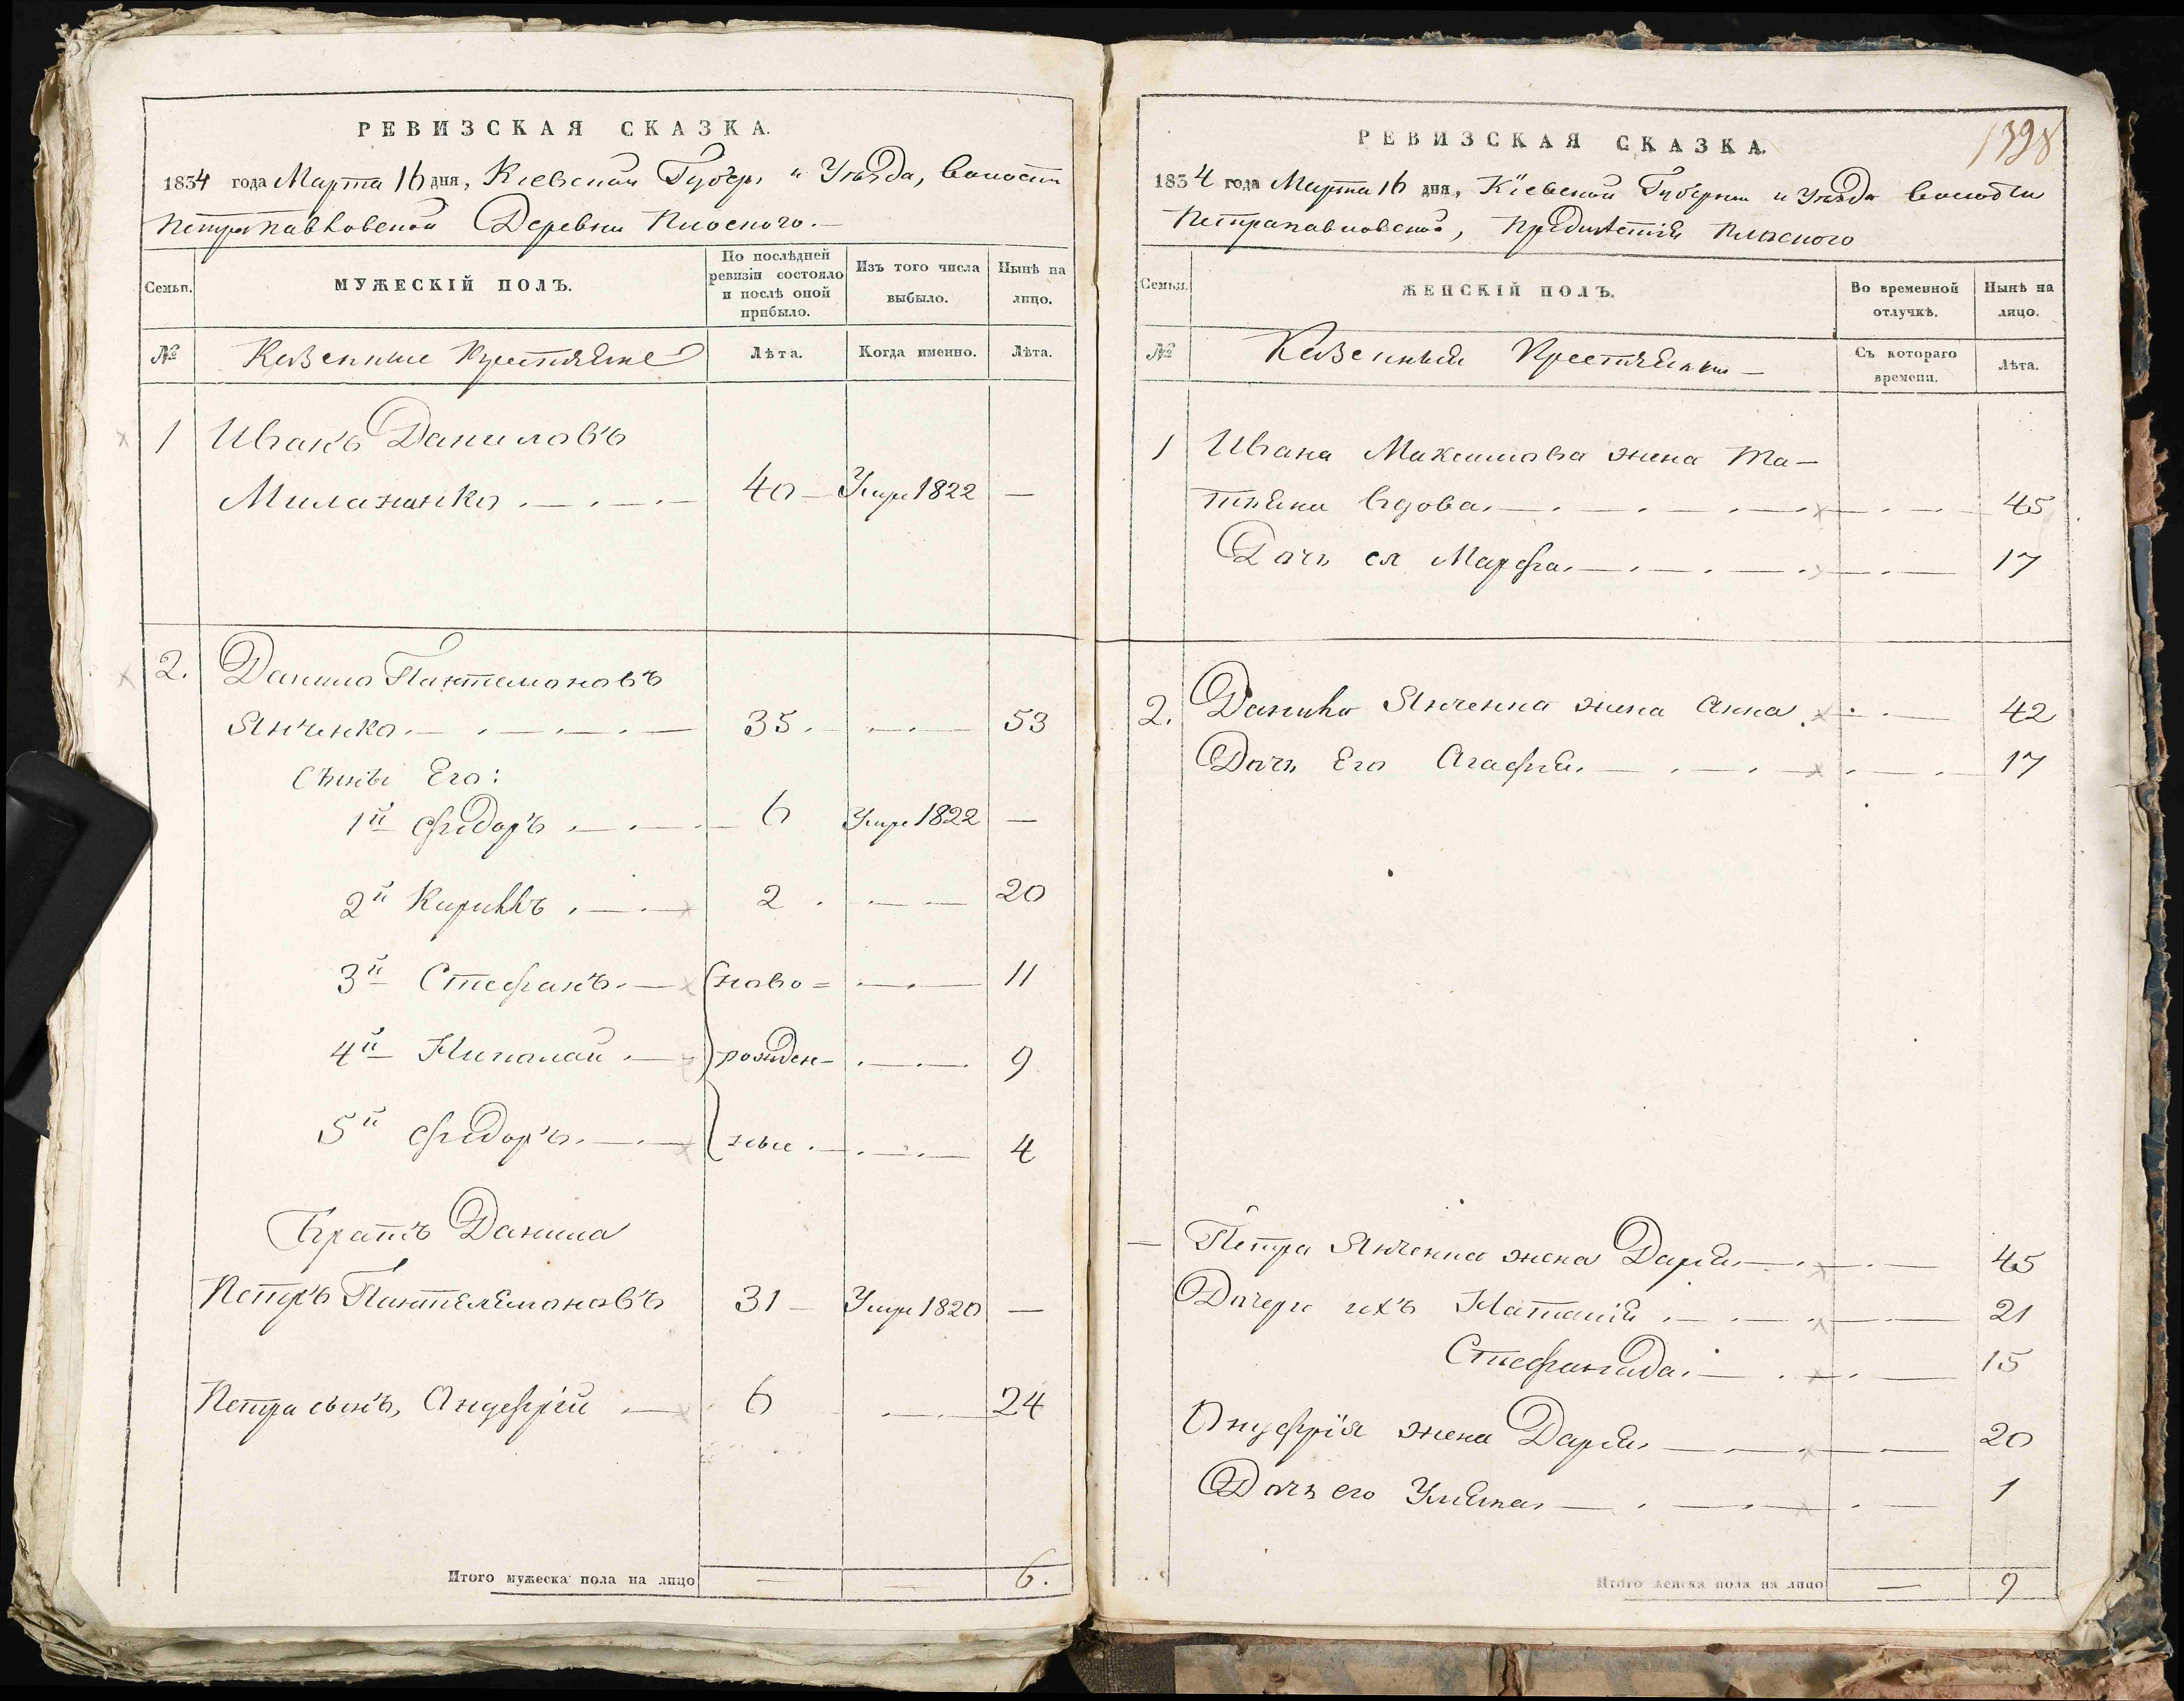 РЕВИЗСКАЯ СКАЗКА.
1834 года Марта 16 дня, Кіевской Губер. и Уѣзда, волости
Петропавловской Деревни Плоского.
Семьи.
МУЖЕСКІЙ ПОЛЪ.
По послѣдней ревизіи состояло и послѣ оной прибыло.
Изъ того числа выбыло.
Нынѣ на лицо.
№
Казенные Крестьяне
Лѣта.
Когда именно.
Лѣта.
1 Иванъ Даниловъ
40 Умре 1822 —
2. Данило Пантелимоновъ
Янченко 35. 53
Сыны Его:
1й Федоръ 6 Умре 1822 —
2й Кирилъ 2 20
3й Стефанъ ново= 11
4й Николай рожден- 9
5й Федоръ ные 4
Братъ Данила
Петръ Пантелемоновъ 31 Умре 1820 —
Петра сынъ, Андефрій 6 24
Итого мужеска пола на лицо — — 6.
РЕВИЗСКАЯ СКАЗКА.
1398
1834 года Марта 16 дня, Кіевской Губерни и Уѣзда волости
Петропавловской, Плоского
Семьи.
ЖЕНСКІЙ ПОЛЪ.
Во временной отлучкѣ.
Нынѣ на лицо.
№
Казенныи Крестьянки
Съ котораго времени.
Лѣта.
1 Ивана Максимова жена Та-
тьяна вдова 45
Дочь ея Марфа 17
2. Данила Янченка жена Анна 42
Дочь Его Агафія 17
Петра Янченка жена Дарья 45
Дочери ихъ Наталія 21
Стефанида 15
Онуфрія жена Дарья 20
Дочь его Ульяна 1
Итого женска пола на лицо — 9